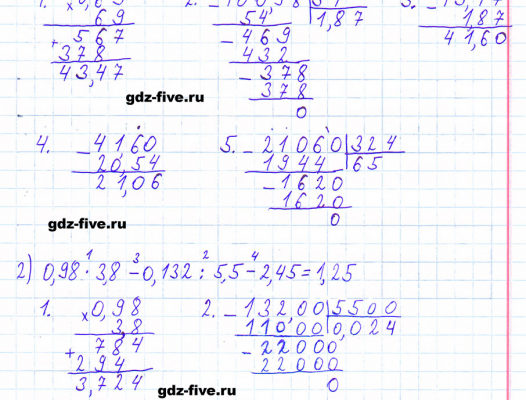 1. × 0,63 2. – 100,98 | 54 3. – 43,47
69 54 1,87 1,87
+ 567 – 469 41,60
378 432
43,47 – 378
gdz-five.ru 378
0
4. – 41,60 5. – 21060 | 324
20,54 1944 65
21,06 – 1620
1620
gdz-five.ru 0
2) 0,98 · 3,8 – 0,132 : 5,5 – 2,45 = 1,25
1 3 2 4
1. × 0,98 2. – 132,00 | 5500
3,8 110 00 0,024
+ 784 – 22000
294 22000
3,724 0
gdz-five.ru